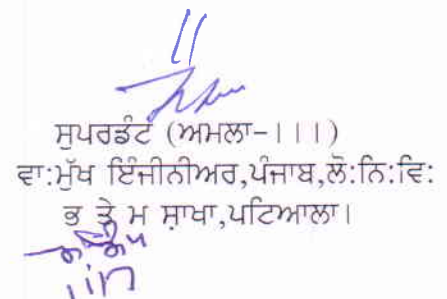 ਸੁਪਰਡੰਟ (ਅਮਲਾ-।।।)
ਵਾ:ਮੁੱਖ ਇੰਜੀਨੀਅਰ,ਪੰਜਾਬ,ਲੋ:ਨਿ:ਵਿ:
ਭ ਤੇ ਮ ਸ਼ਾਖਾ,ਪਟਿਆਲਾ।